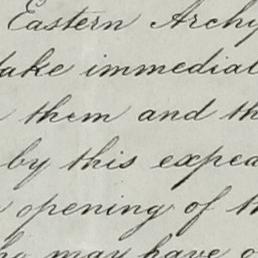 Eastern Archy
take immedial
them and th
by this exped
opening of th
ho may have o